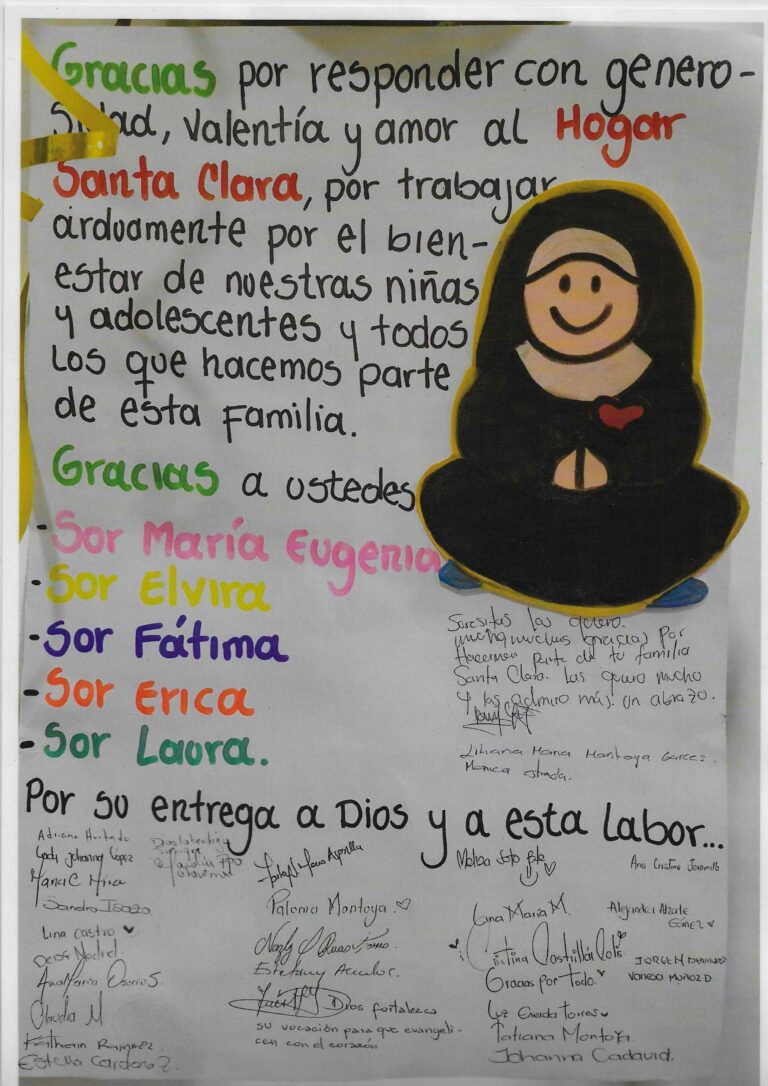 Gracias por responder con genero-
sidad, valentía y amor al Hogar
Santa Clara, por trabajar
arduamente por el bien-
estar de nuestras niñas
y adolescentes y todos
los que hacemos parte
de esta Familia.
Gracias a ustedes
- Sor María Eugenia
- Sor Elvira
- Sor Fátima
- Sor Erica
- Sor Laura.
Soresitas las quiero.
muchas gracias por
Hacerme parte de tu familia
Santa Clara. las quiero mucho
y las admiro más. un abrazo.
Liliana Maria Montoya Garces.
Monica estrada.
Por su entrega a Dios y a esta labor...
Adriana Hurtado
Leidy Johanna López
Maria C Mina
Sandra Isaza
Lina Castro
Deisy Madrid
Ana Maria Osorio S.
Claudia M
Katherin Ramirez
Estella Cardona
Paloma Montoya.
Estefany
Dios fortalezca
su vocación para que evangeli-
cen con el corazón
Melisa Soto
Lina Maria M.
Cristina Castrillón
Gracias por todo.
Luz Eneida Torres
Tatiana Montoya
Johanna Cadavid.
Ana Cristina Jaramillo
Alejandra Alzate
Gómez
Jorge M
Vanesa Muñoz D.